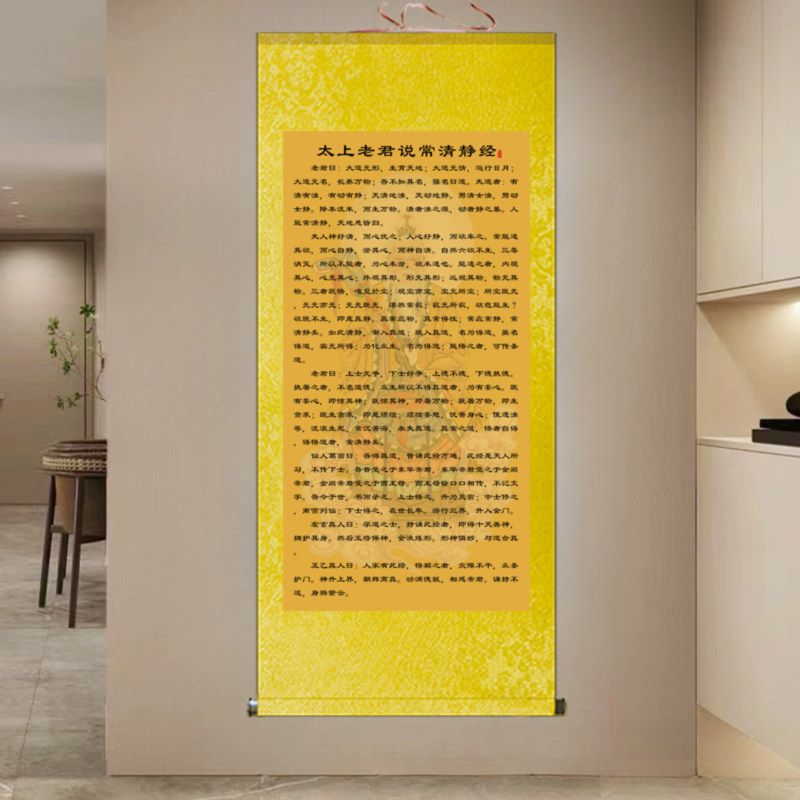 太上老君说常清静经
老君曰：大道无形，生育天地；大道无情，运行日月；
大道无名，长养万物；吾不知其名，强名曰道。夫道者：有
清有浊，有动有静；天清地浊，天动地静。男清女浊，男动
女静。降本流末，而生万物。清者浊之源，动者静之基。人
能常清静，天地悉皆归。
夫人神好清，而心扰之；人心好静，而欲牵之。常能遣
其欲，而心自静，澄其心，而神自清。自然六欲不生，三毒
消灭。所以不能者，为心未澄，欲未遣也。能遣之者，内观
其心，心无其心；外观其形，形无其形；远观其物，物无其
物。三者既悟，唯见於空；观空亦空，空无所空；所空既无
，无无亦无；无无既无，湛然常寂；寂无所寂，欲岂能生？
欲既不生，即是真静。真常应物，真常得性；常应常静，常
清静矣。如此清静，渐入真道；既入真道，名为得道，虽名
得道，实无所得；为化众生，名为得道；能悟之者，可传圣
道。
老君曰：上士无争，下士好争；上德不德，下德执德。
执著之者，不名道德。众生所以不得真道者，为有妄心。既
有妄心，即惊其神；既惊其神，即著万物；既著万物，即生
贪求；既生贪求，即是烦恼；烦恼妄想，忧苦身心；便遭浊
辱，流浪生死，常沉苦海，永失真道。真常之道，悟者自得
，得悟道者，常清静矣。
仙人葛翁曰：吾得真道，曾诵此经万遍。此经是天人所
习，不传下士。吾昔受之于东华帝君，东华帝君受之于金阙
帝君，金阙帝君受之于西王母。西王母皆口口相传，不记文
字。吾今于世，书而录之。上士悟之，升为天官；中士修之
，南宫列仙；下士得之，在世长年。游行三界，升入金门。
左玄真人曰：学道之士，持诵此经者，即得十天善神，
拥护其身。然后玉符保神，金液炼形。形神俱妙，与道合真
。
正乙真人曰：人家有此经，悟解之者，灾障不干，众圣
护门。神升上界，朝拜高真。功满德就，相感帝君。诵持不
退，身腾紫云。